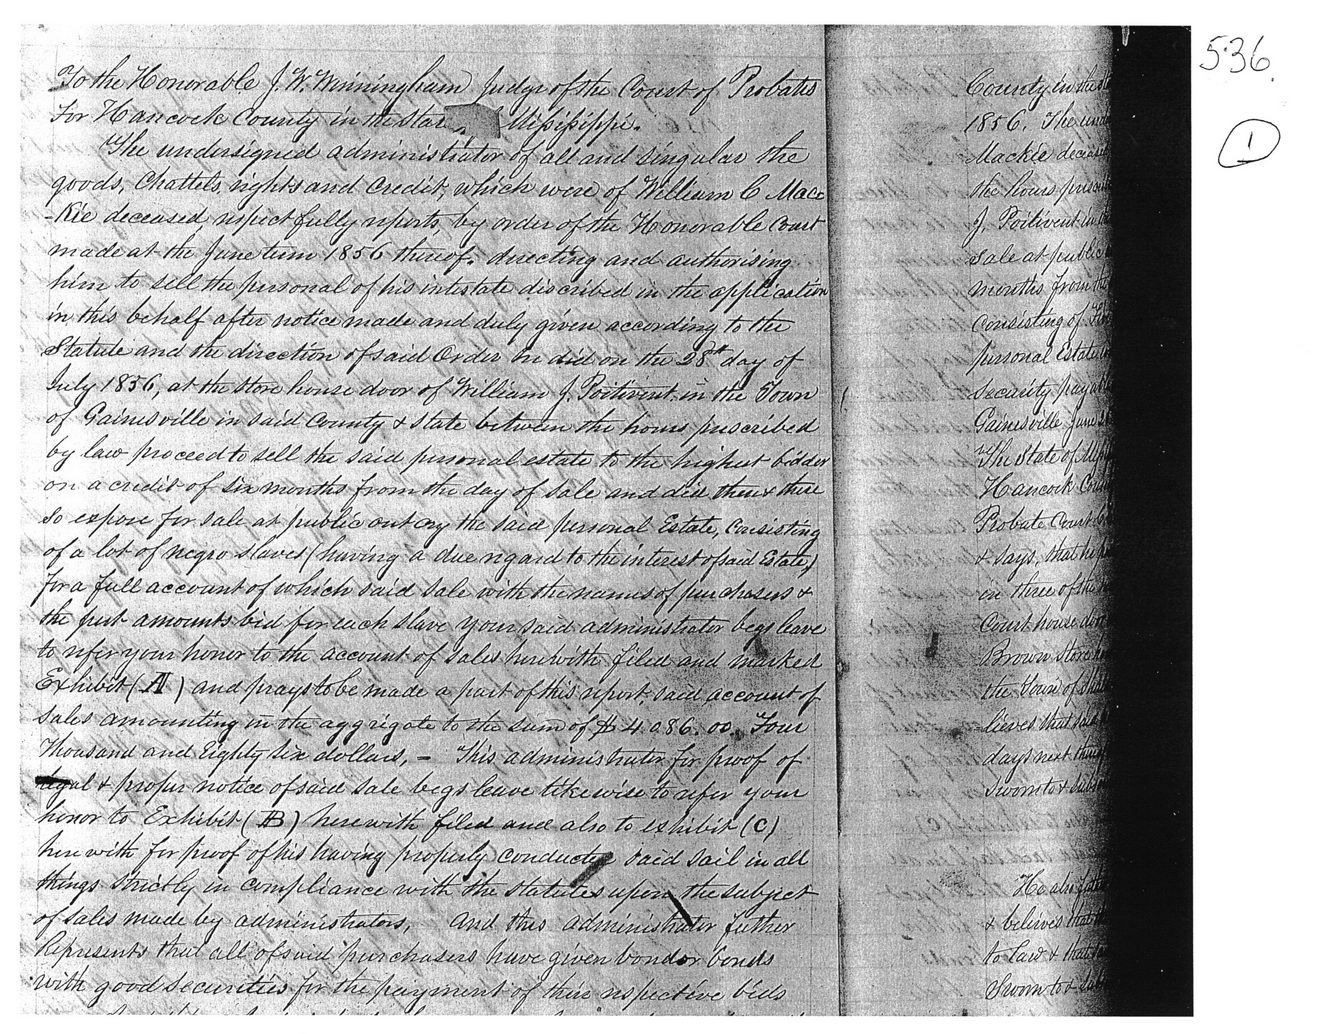 To the Honorable J. W. Winingham Judge of the Court of Probates
For Hancock County in the Stat Missisippi.
The undersigned administrator of all and singular the
goods, Chattels, rights and Credit, which were of William C Mac
-Kie deceased, respectfully reports, by order of the Honorable Court
made at the June term 1856 thereof, directing and authorising
him to sell the personal of his intestate discribed in the application
in this behalf after notice made and duly given according to the
Statute and the direction of said Order he did on the 28th day of
July 1856, at the store house door of William J. Poitivent in the Town
of Gainesville in said County & State between the hours prescribed
by law proceed to sell the said personal estate to the highest bidder
on a credit of six months from the day of sale and did then & there
so expose for sale at public out cry the said personal Estate, Consisting
of a lot of negro slaves (having a due regard to the interest of said Estate)
For a full account of which said sale with the names of purchasers &
the amounts bid for each slave your said administrator begs leave
to refer your honor to the account of sales herewith filed and marked
Exhibit (A) and prays to be made a part of this report, said account of
sales amounting in the aggregate to the sum of $4.086.00. Four
Thousand and Eighty six dollars, – This administrator for proof of
legal & proper notice of said sale begs leave likewise to refer your
honor to Exhibit (B) herewith filed and also to exhibit (C)
herewith for proof of his having properly conducted said sail in all
things strictly in compliance with the statutes upon the subject
of sales made by administrators, And this administrator further
Represents that all of said purchasers have given bond or bonds
with good securities for the payment of their respective bids
536.
1
County in the
1856. The und
Mackie deceased
the hours prescri
J. Poitivent in
sale at public
months from the
consisting of
personal Estate
security payab
Gainesville June 2
The State of Miss
Hancock Coun
Probate Court
& says, that he
in three of the
Court house door
Brown store
the Town of
lieves that said
days next
Sworn to & subs
He also
& believes that
to Law & that
Sworn to & sub